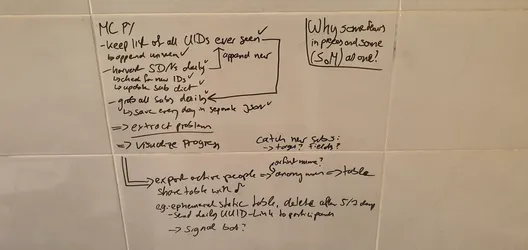 MC PY
- keep list of all UIDs ever seen ✓
↳ append unseen ✓
append new
- harvest SDNs daily ✓
↳ check for new IDs ✓
↳ update sub dict ✓
- grab all subs daily ✓
↳ save every day in separate json ✓
⇒ extract problem
⇒ visualize progress
Why some
in person and some
(SoM) alone?
Catch new subs:
→ target? fields?
or first name?
⇒ export active people ⇒ anonymous ⇒ table
share table with
e.g. ephemeral static table, delete after 5/3 days
- send daily UUID-Link to participants
→ Signal bot?